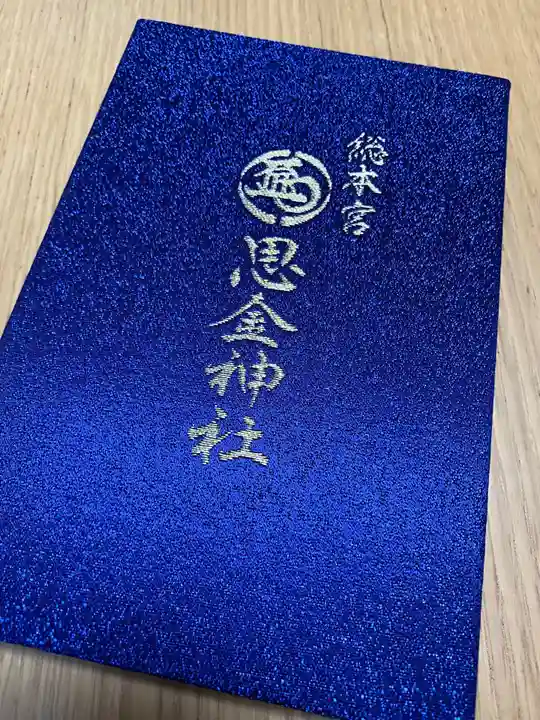 総本宮
思金神社